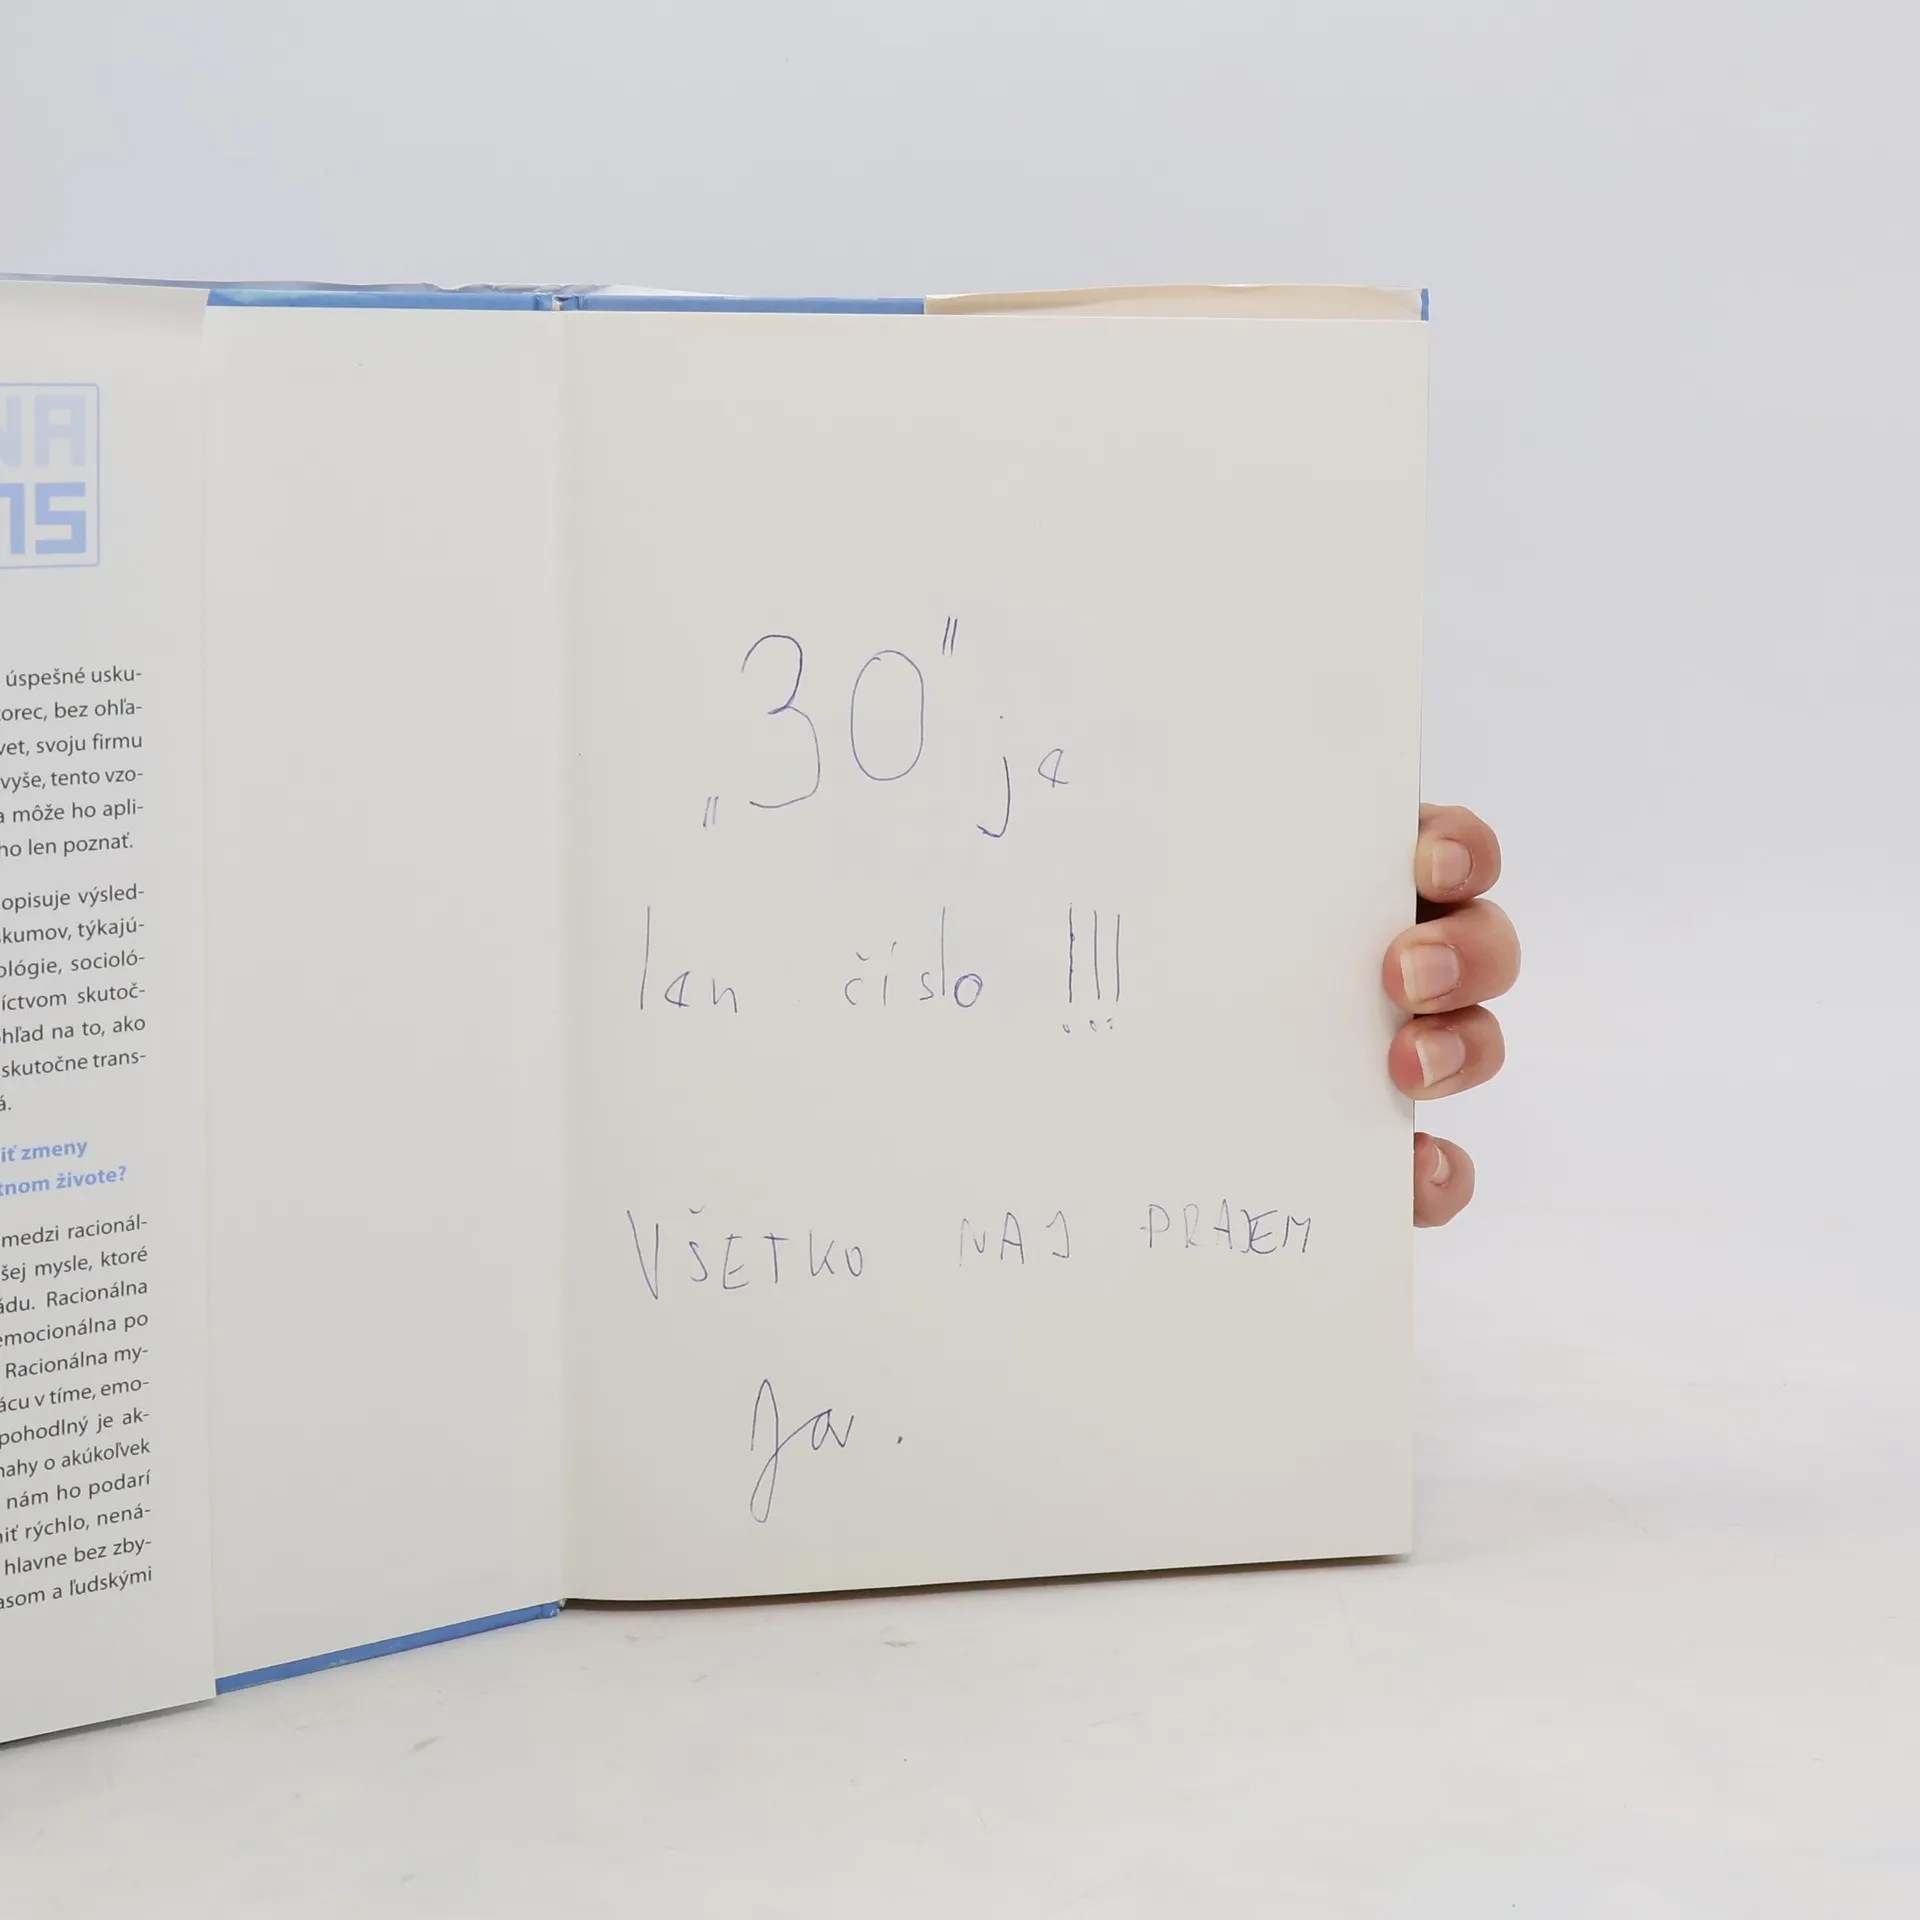 NA
MS
úspešné usku-
orec, bez ohľa-
vet, svoju firmu
vyše, tento vzo-
a môže ho apli-
ho len poznať.
opisuje výsled-
skumov, týkajú-
ológie, socioló-
níctvom skutoč-
ohľad na to, ako
skutočne trans-
á.
iť zmeny
tnom živote?
medzi racionál-
šej mysle, ktoré
ádu. Racionálna
emocionálna po
Racionálna my-
ácu v tíme, emo-
pohodlný je ak-
nahy o akúkoľvek
nám ho podarí
niť rýchlo, nená-
hlavne bez zby-
asom a ľudskými
„30" je
len číslo !!!
VŠETKO NAJ PRAJEM
Ja.